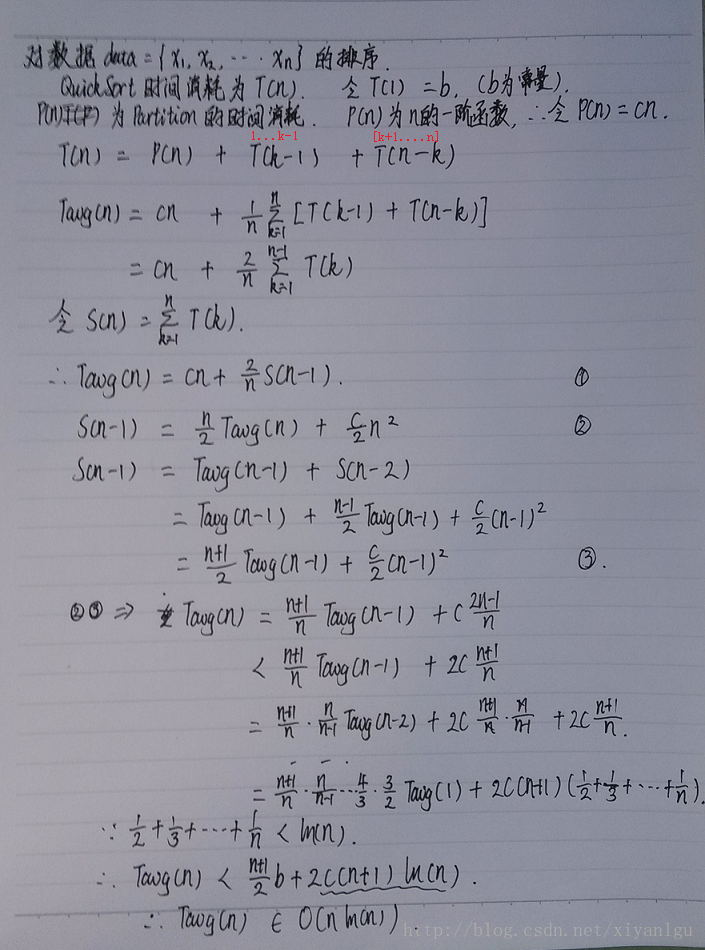 对数据 data = {x₁, x₂, ⋯ xₙ} 的排序.
QuickSort 时间消耗为 T(n). 令 T(1) = b, (b为常量).
P(n) 为 Partition 的时间消耗. P(n) 为 n 的一阶函数, ∴令 P(n) = cn.
1...k-1 [k+1....n]
T(n) = P(n) + T(k-1) + T(n-k)
Tavg(n) = cn + 1/n ∑_{k=1}^{n} [T(k-1) + T(n-k)]
= cn + 2/n ∑_{k=1}^{n-1} T(k)
令 S(n) = ∑_{k=1}^{n} T(k).
∴ Tavg(n) = cn + 2/n S(n-1). ①
S(n-1) = n/2 Tavg(n) + c/2 n² ②
S(n-1) = Tavg(n-1) + S(n-2)
= Tavg(n-1) + (n-1)/2 Tavg(n-1) + c/2 (n-1)²
= (n+1)/2 Tavg(n-1) + c/2 (n-1)² ③.
②③ ⇒ Tavg(n) = (n+1)/n Tavg(n-1) + c (2n-1)/n
< (n+1)/n Tavg(n-1) + 2c (n+1)/n
= (n+1)/n · n/(n-1) Tavg(n-2) + 2c (n+1)/n · n/(n-1) + 2c (n+1)/n.
= (n+1)/n · n/(n-1) ⋯ 4/3 · 3/2 Tavg(1) + 2c(n+1) (1/2 + 1/3 + ⋯ + 1/n).
∵ 1/2 + 1/3 + ⋯ + 1/n < ln(n).
∴ Tavg(n) < (n+1)/2 b + 2c(n+1) ln(n).
∴ Tavg(n) ∈ O(n ln(n)).
http://blog.csdn.net/xiyanlgu